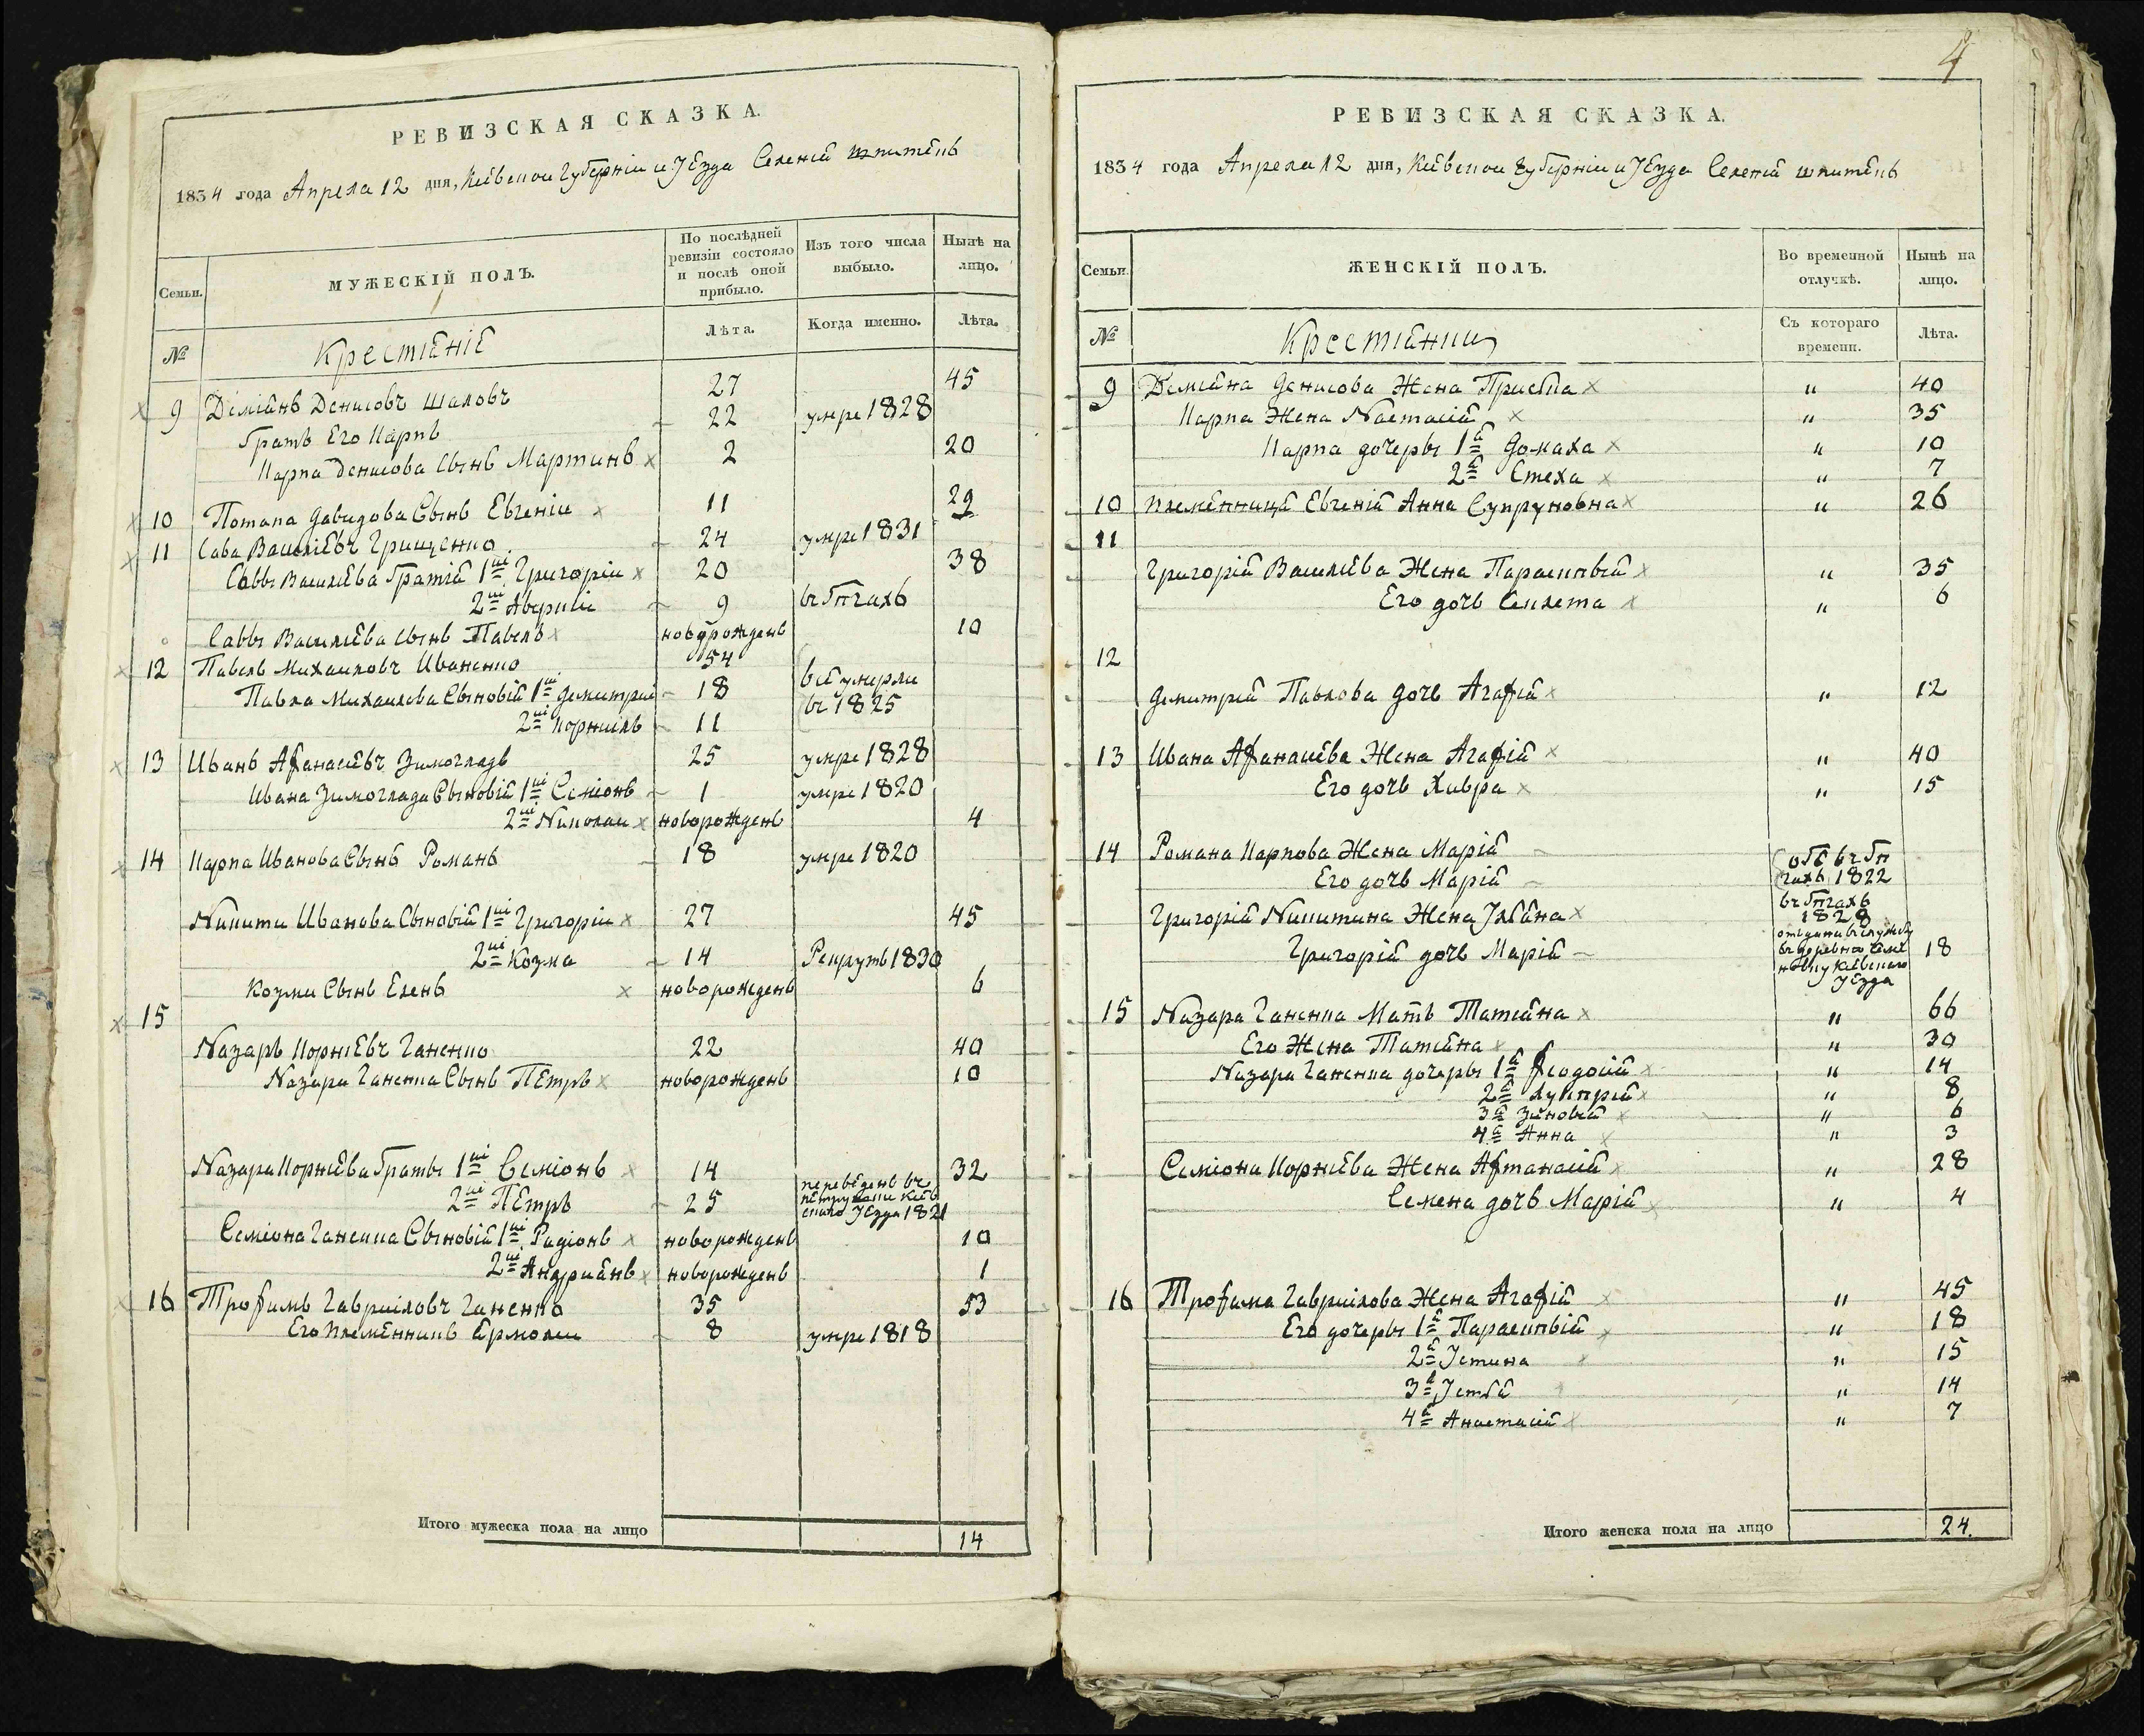 РЕВИЗСКАЯ СКАЗКА.
1834 года Апреля 12 дня, Кіевской Губерніи и Уезда Селенія шпитекъ
Семьи. МУЖЕСКІЙ ПОЛЪ. По послѣдней ревизіи состояло и послѣ оной прибыло. Изъ того числа выбыло. Нынѣ на лицо.
№ Крестяне Лѣта. Когда именно. Лѣта.
9 Деміянъ Денисовъ Шаховъ 27 45
братъ Его Карпъ 22 умре 1828
Карпа Денисова сынъ Мартинъ 2 20
10 Потапа Давидова Сынъ Евгеній 11 29
11 Сава Василіевъ Грищенко 24 умре 1831
Саввы Василіева братія 1ій Григорій 20 38
2ій Аверкій 9 въ бѣгахъ
Саввы Василіева сынъ Павелъ новорожденъ 10
12 Павелъ Михаиловъ Иваненко 54
Павла Михаилова Сыновія 1ій Димитрий 18 всѣ умерли
2ій Корнилъ 11 въ 1825
13 Иванъ Афанасіевъ Зимогладъ 25 умре 1828
Ивана Зимоглада Сыновія 1ій Семіонъ 1 умре 1820
2ій Николай новорожденъ 4
14 Карпа Иванова Сынъ Романъ 18 умре 1820
Никити Иванова Сыновія 1ій Григорій 27 45
2ій Козма 14 Рекрутъ 1830
Козми Сынъ Еленъ новорожденъ 6
15
Назаръ Корніевъ Ганенко 22 40
Назара Ганенка Сынъ Петръ новорожденъ 10
Назара Корніева браты 1ій Семіонъ 14 32
2ій Петръ 25 переведенъ въ Петрушки Кіевскаго Уезда 1821
Семіона Ганенка Сыновія 1ій Радіонъ новорожденъ 10
2ій Андріянъ новорожденъ 1
16 Трофимъ Гавриіловъ Ганенко 35 53
Его племенникъ Ермолай 8 умре 1818
Итого мужеска пола на лицо 14
4
РЕВИЗСКАЯ СКАЗКА.
1834 года Апреля 12 дня, Кіевской Губерніи и Уезда Селенія шпитекъ
Семьи. ЖЕНСКІЙ ПОЛЪ. Во временной отлучкѣ. Нынѣ на лицо.
№ Крестянки Съ котораго времени. Лѣта.
9 Деміяна Денисова Жена Приська " 40
Карпа Жена Настасія " 35
Карпа дочеры 1я Домаха " 10
2я Стеха " 7
10 племенница Евгенія Анна Супруновна " 26
11
Григорія Василіева Жена Параскивія " 35
Его дочь Секлета " 6
12
Димитрія Павлова дочь Агафія " 12
13 Ивана Афанасіева Жена Агафія " 40
Его дочь Хивра " 15
14 Романа Карпова Жена Марія обѣ въ бѣ
Его дочь Марія гахъ 1822
Григорія Никитина Жена Уліяна въ бѣгахъ 1828
Григорія дочь Марія отдана въ въ деревню Кіевскаго Уезда 18
15 Назара Ганенка Мать Татіяна " 66
Его Жена Татіяна " 30
Назара Ганенка дочеры 1я Феодосія " 14
2я Лукирія " 8
3я Зиновія " 6
4я Анна " 3
Семіона Корніева Жена Афтанасія " 28
Семена дочь Марія " 4
16 Трофима Гавриілова Жена Агафія " 45
Его дочеры 1я Параскивія " 18
2я Устина " 15
3я Устя " 14
4я Анастасія " 7
Итого женска пола на лицо 24.